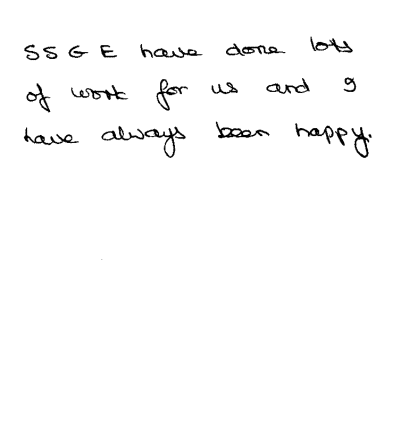 SSGE have done lots
of work for us and I
have always been happy.